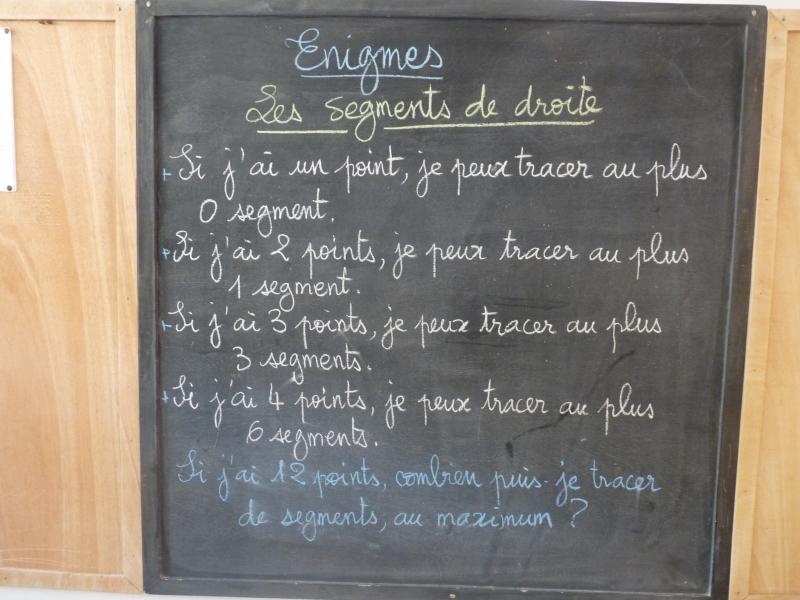 Enigmes
Les segments de droite
+ Si j'ai un point, je peux tracer au plus
0 segment.
+ Si j'ai 2 points, je peux tracer au plus
1 segment.
+ Si j'ai 3 points, je peux tracer au plus
3 segments.
+ Si j'ai 4 points, je peux tracer au plus
6 segments.
Si j'ai 12 points, combien puis-je tracer
de segments, au maximum ?